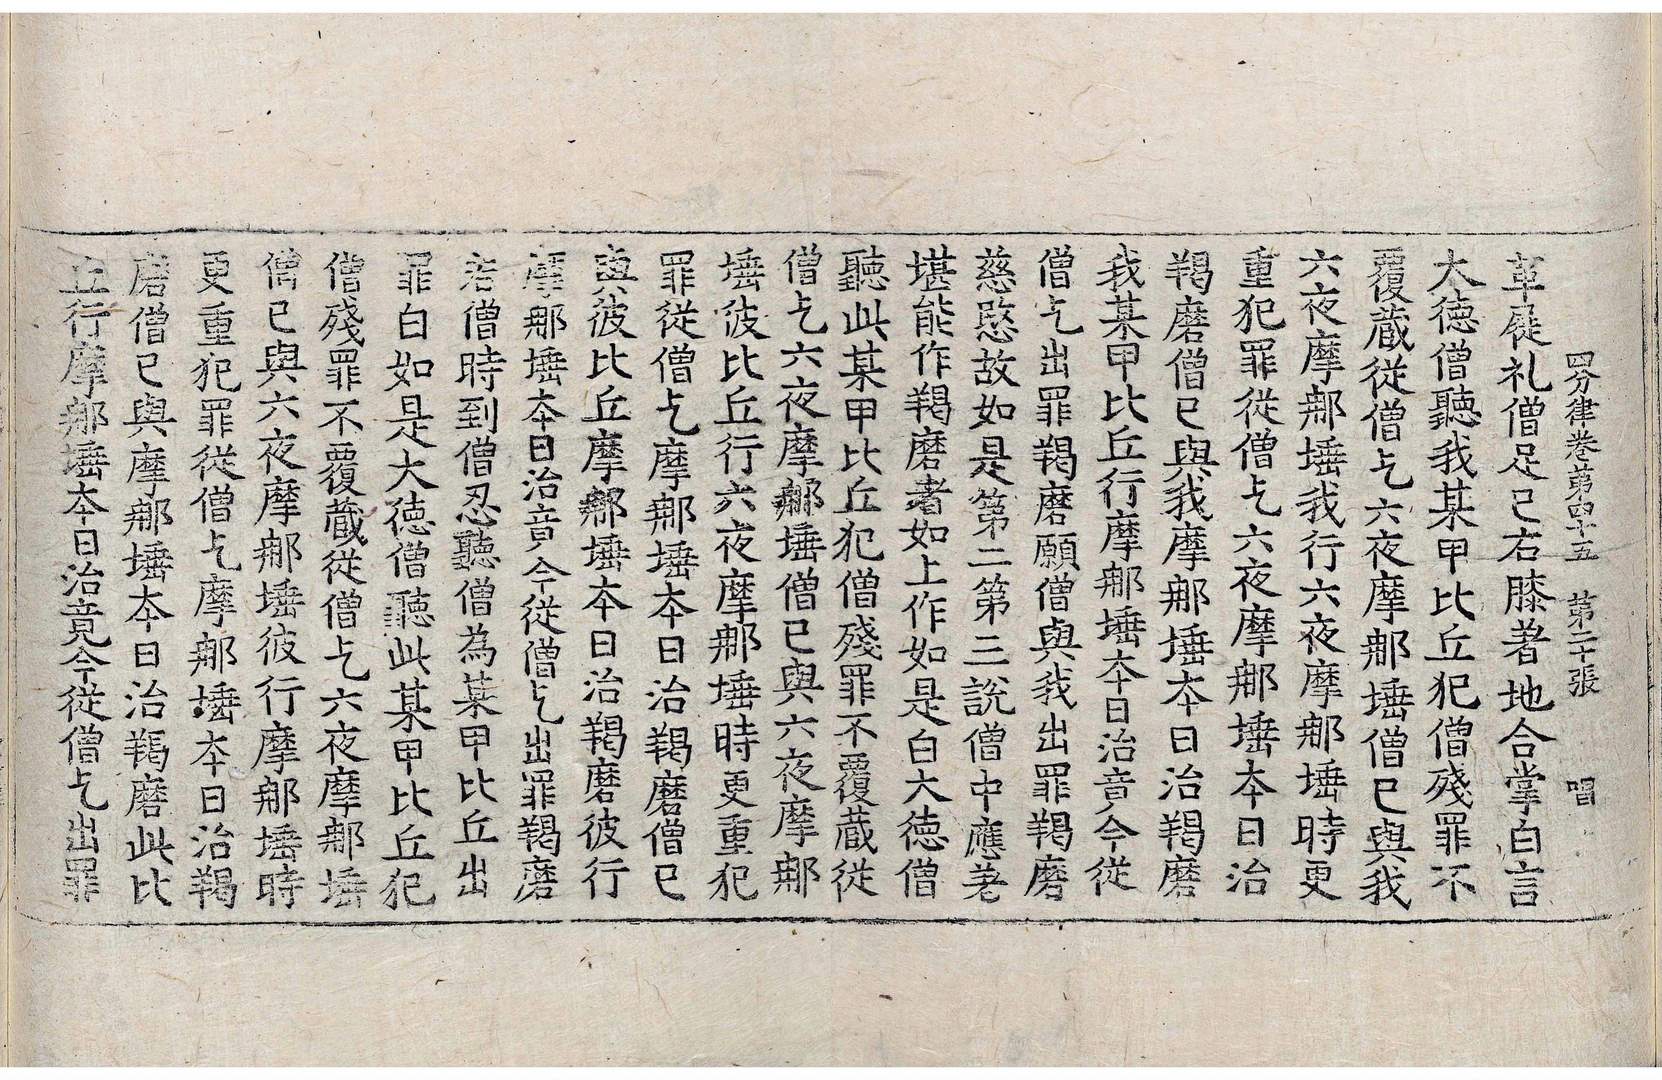 四分律卷第四十五　第二十張　唱
革屣礼僧足已右膝著地合掌白言
大德僧聽我某甲比丘犯僧殘罪不
覆藏從僧乞六夜摩那埵僧已與我
六夜摩那埵我行六夜摩那埵時更
重犯罪從僧乞六夜摩那埵本日治
羯磨僧已與我摩那埵本日治羯磨
我某甲比丘行摩那埵本日治竟今從
僧乞出罪羯磨願僧與我出罪羯磨
慈愍故如是第二第三說僧中應差
堪能作羯磨者如上作如是白大德僧
聽此某甲比丘犯僧殘罪不覆藏從
僧乞六夜摩那埵僧已與六夜摩那
埵彼比丘行六夜摩那埵時更重犯
罪從僧乞摩那埵本日治羯磨僧已
與彼比丘摩那埵本日治羯磨彼行
摩那埵本日治竟今從僧乞出罪羯磨
若僧時到僧忍聽僧為某甲比丘出
罪白如是大德僧聽此某甲比丘犯
僧殘罪不覆藏從僧乞六夜摩那埵
僧已與六夜摩那埵彼行摩那埵時
更重犯罪從僧乞摩那埵本日治羯
磨僧已與摩那埵本日治羯磨此比
丘行摩那埵本日治竟今從僧乞出罪